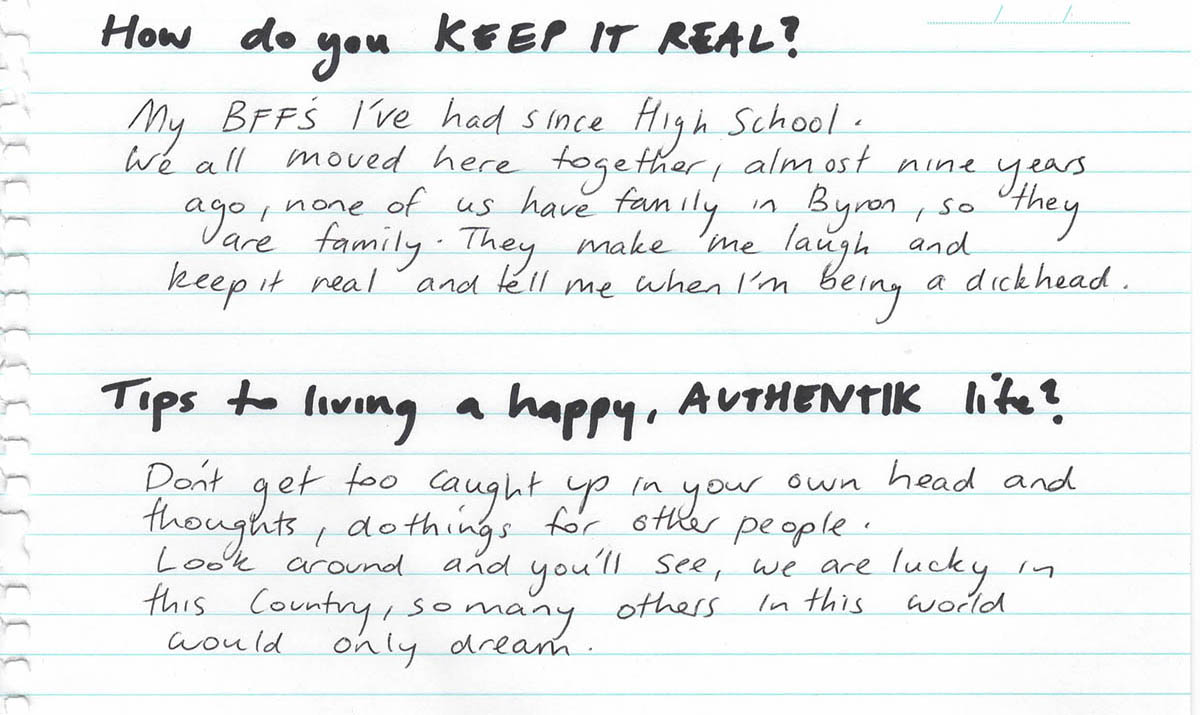 How do you KEEP IT REAL?
My BFF'S I've had since High School.
We all moved here together, almost nine years
ago, none of us have family in Byron, so they
are family. They make me laugh and
keep it real and tell me when I'm being a dickhead.
Tips to living a happy, AUTHENTIK life?
Don't get too caught up in your own head and
thoughts, do things for other people.
Look around and you'll see, we are lucky in
this Country, so many others in this world
would only dream.